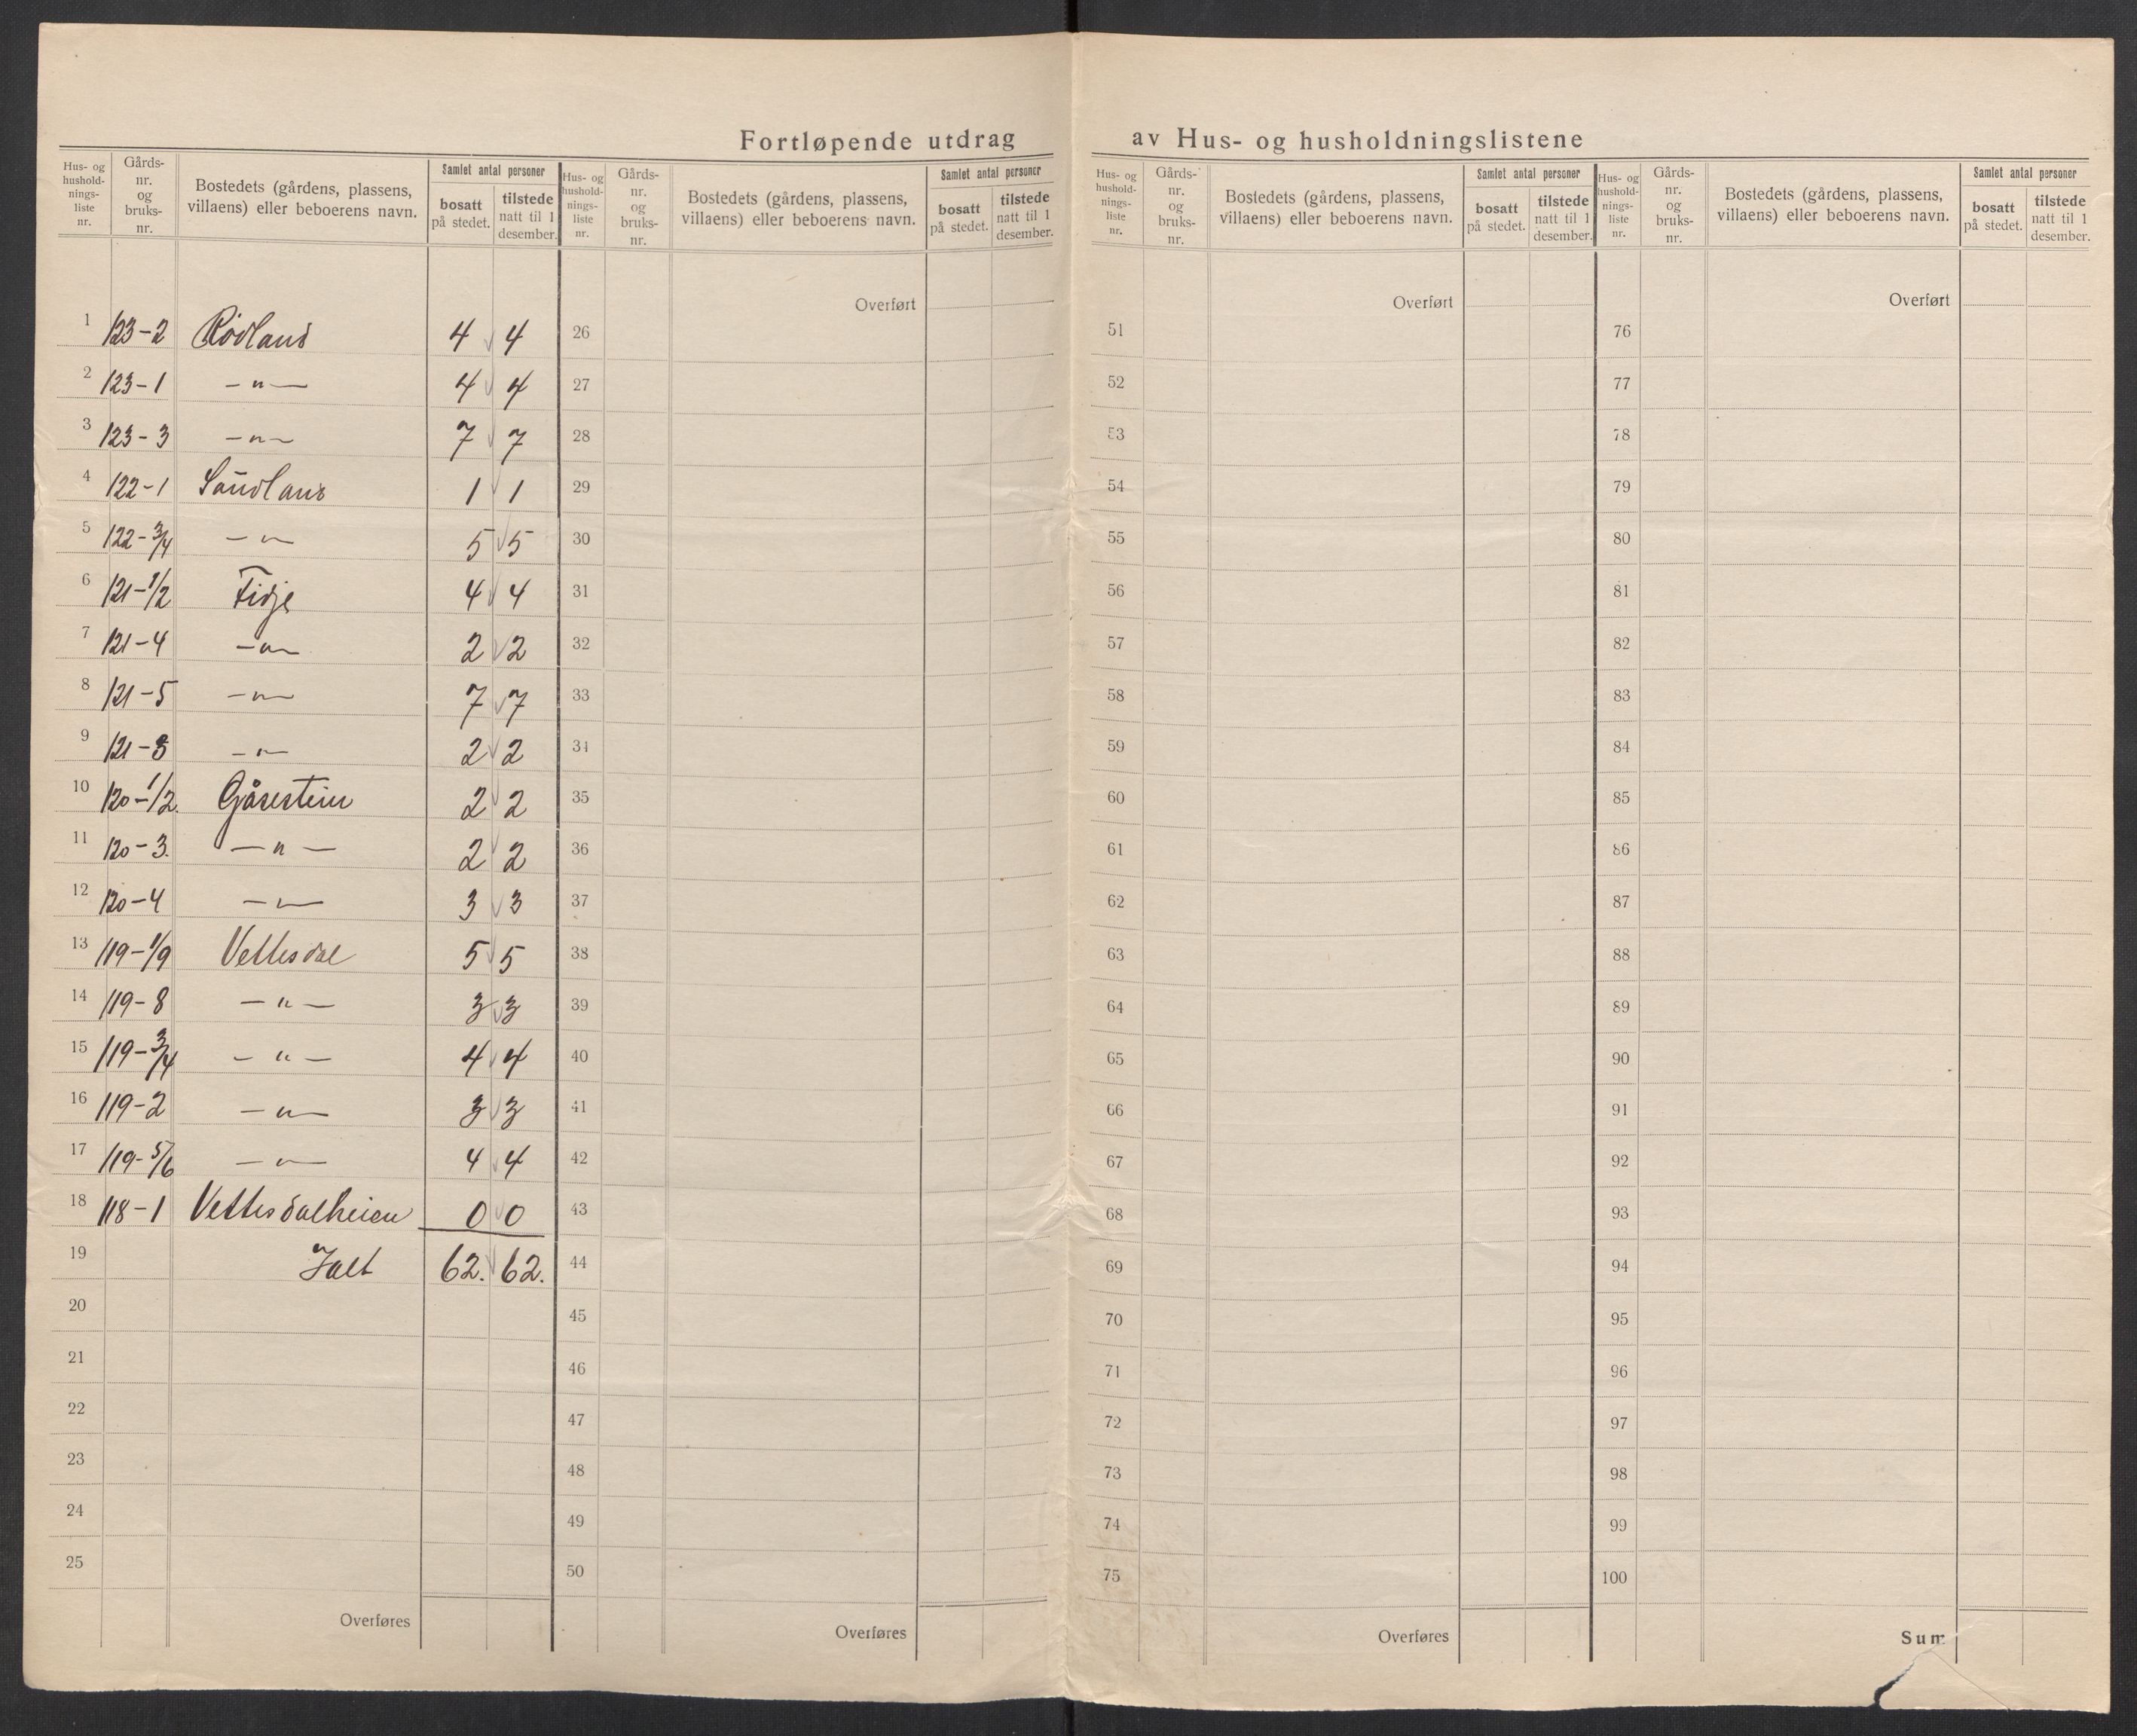 Fortløpende utdrag av Hus- og husholdningslistene
Hus- og hushold-nings-liste nr. Gårds-nr. og bruks-nr. Bostedets (gårdens, plassens, villaens) eller beboerens navn. Samlet antal personer bosatt på stedet. tilstede natt til 1 desember.
Hus- og hushold-nings-liste nr. Gårds-nr. og bruks-nr. Bostedets (gårdens, plassens, villaens) eller beboerens navn. Samlet antal personer bosatt på stedet. tilstede natt til 1 desember.
Hus- og hushold-nings-liste nr. Gårds-nr. og bruks-nr. Bostedets (gårdens, plassens, villaens) eller beboerens navn. Samlet antal personer bosatt på stedet. tilstede natt til 1 desember.
Hus- og hushold-nings-liste nr. Gårds-nr. og bruks-nr. Bostedets (gårdens, plassens, villaens) eller beboerens navn. Samlet antal personer bosatt på stedet. tilstede natt til 1 desember.
1 123-2 Rödland 4 4
2 123-1 -"- 4 4
3 123-3 -"- 7 7
4 122-1 Saudland 1 1
5 122-3/4 -"- 5 5
6 121-1/2 Fidje 4 4
7 121-4 -"- 2 2
8 121-5 -"- 7 7
9 121-8 -"- 2 2
10 120-1/2 Gåsestein 2 2
11 120-3. -"- 2 2
12 120-4 -"- 3 3
13 119-1/9 Vettesdal 5 5
14 119-8 -"- 3 3
15 119-3/4 -"- 4 4
16 119-2 -"- 3 3
17 119-5/6 -"- 4 4
18 118-1 Vettesdalheien 0 0
19 Ialt 62. 62.
20
21
22
23
24
25
Overføres
Overført
26
27
28
29
30
31
32
33
34
35
36
37
38
39
40
41
42
43
44
45
46
47
48
49
50
Overføres
Overført
51
52
53
54
55
56
57
58
59
60
61
62
63
64
65
66
67
68
69
70
71
72
73
74
75
Overføres
Overført
76
77
78
79
80
81
82
83
84
85
86
87
88
89
90
91
92
93
94
95
96
97
98
99
100
Sum